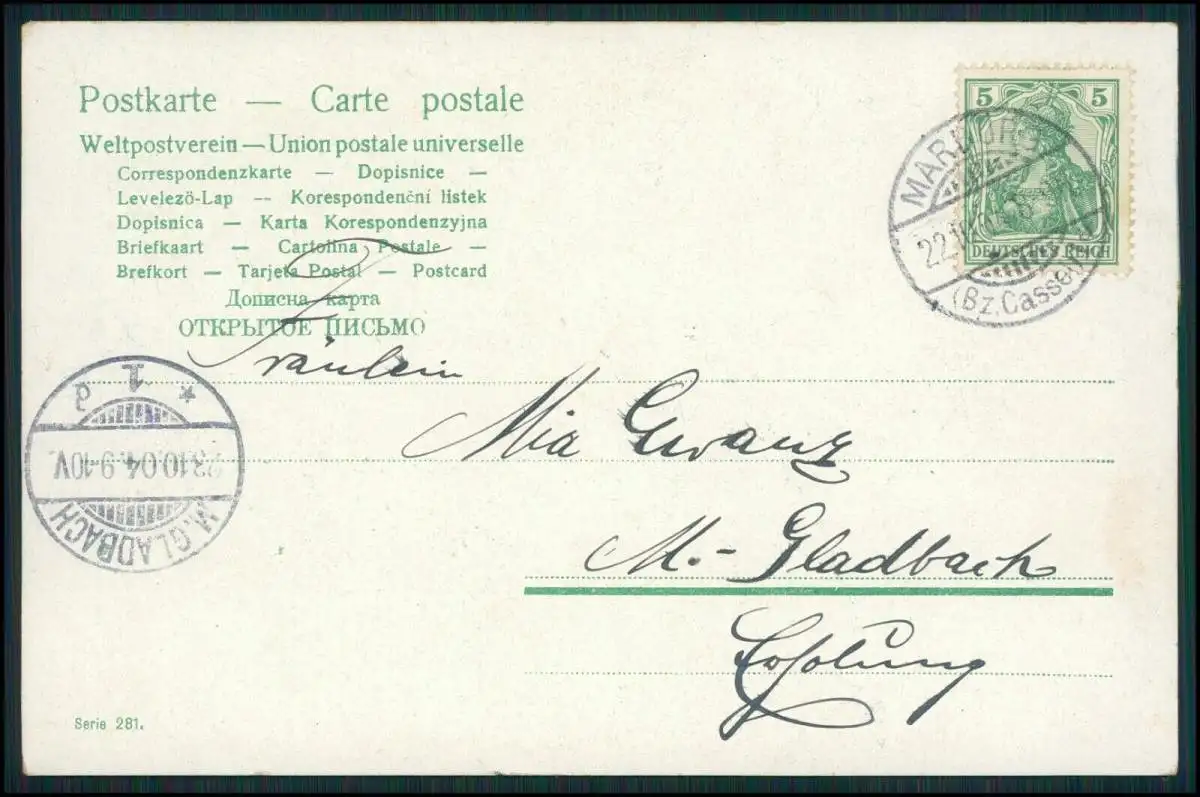 Postkarte — Carte postale
Weltpostverein — Union postale universelle
Correspondenzkarte — Dopisnice —
Levelezö-Lap -- Korespondenční listek
Dopisnica — Karta Korespondenzyjna
Briefkaart — Cartolina Postale —
Brefkort — Tarjeta Postal — Postcard
Дописна карта
ОТКРЫТОЕ ПИСЬМО
5 5
DEUTSCHES REICH
MARBURG
22.10.
(Bz. Cassel)
Fräulein
Mia
M.-Gladbach
Erholung
* 1 d
23.10.04.9-10V.
M. GLADBACH
Serie 281.